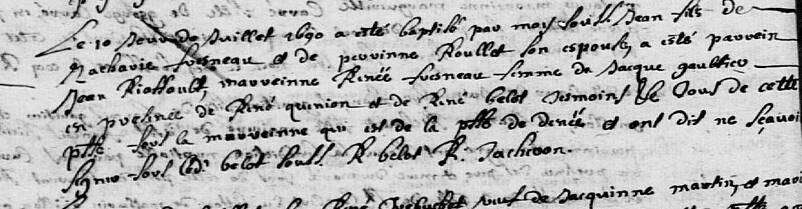 Le 10 Jour de Juillet 1690 a esté baptisé par moy souss. Jean fils de
Zacharie fresneau et de perrinne Roullet son espouse, a esté parrein
Jean Rioffoult, marreinne Renée fresneau femme de Jacque gaultier
en presence de René quinion et de René belot tesmoins Tous de cette
ptte fors la marreinne qui est de la ptte de denée et ont dit ne sçavoir
signer fors led. belot souss. R belot R. Tacheron.
René veuf de Jacquinne martin, et